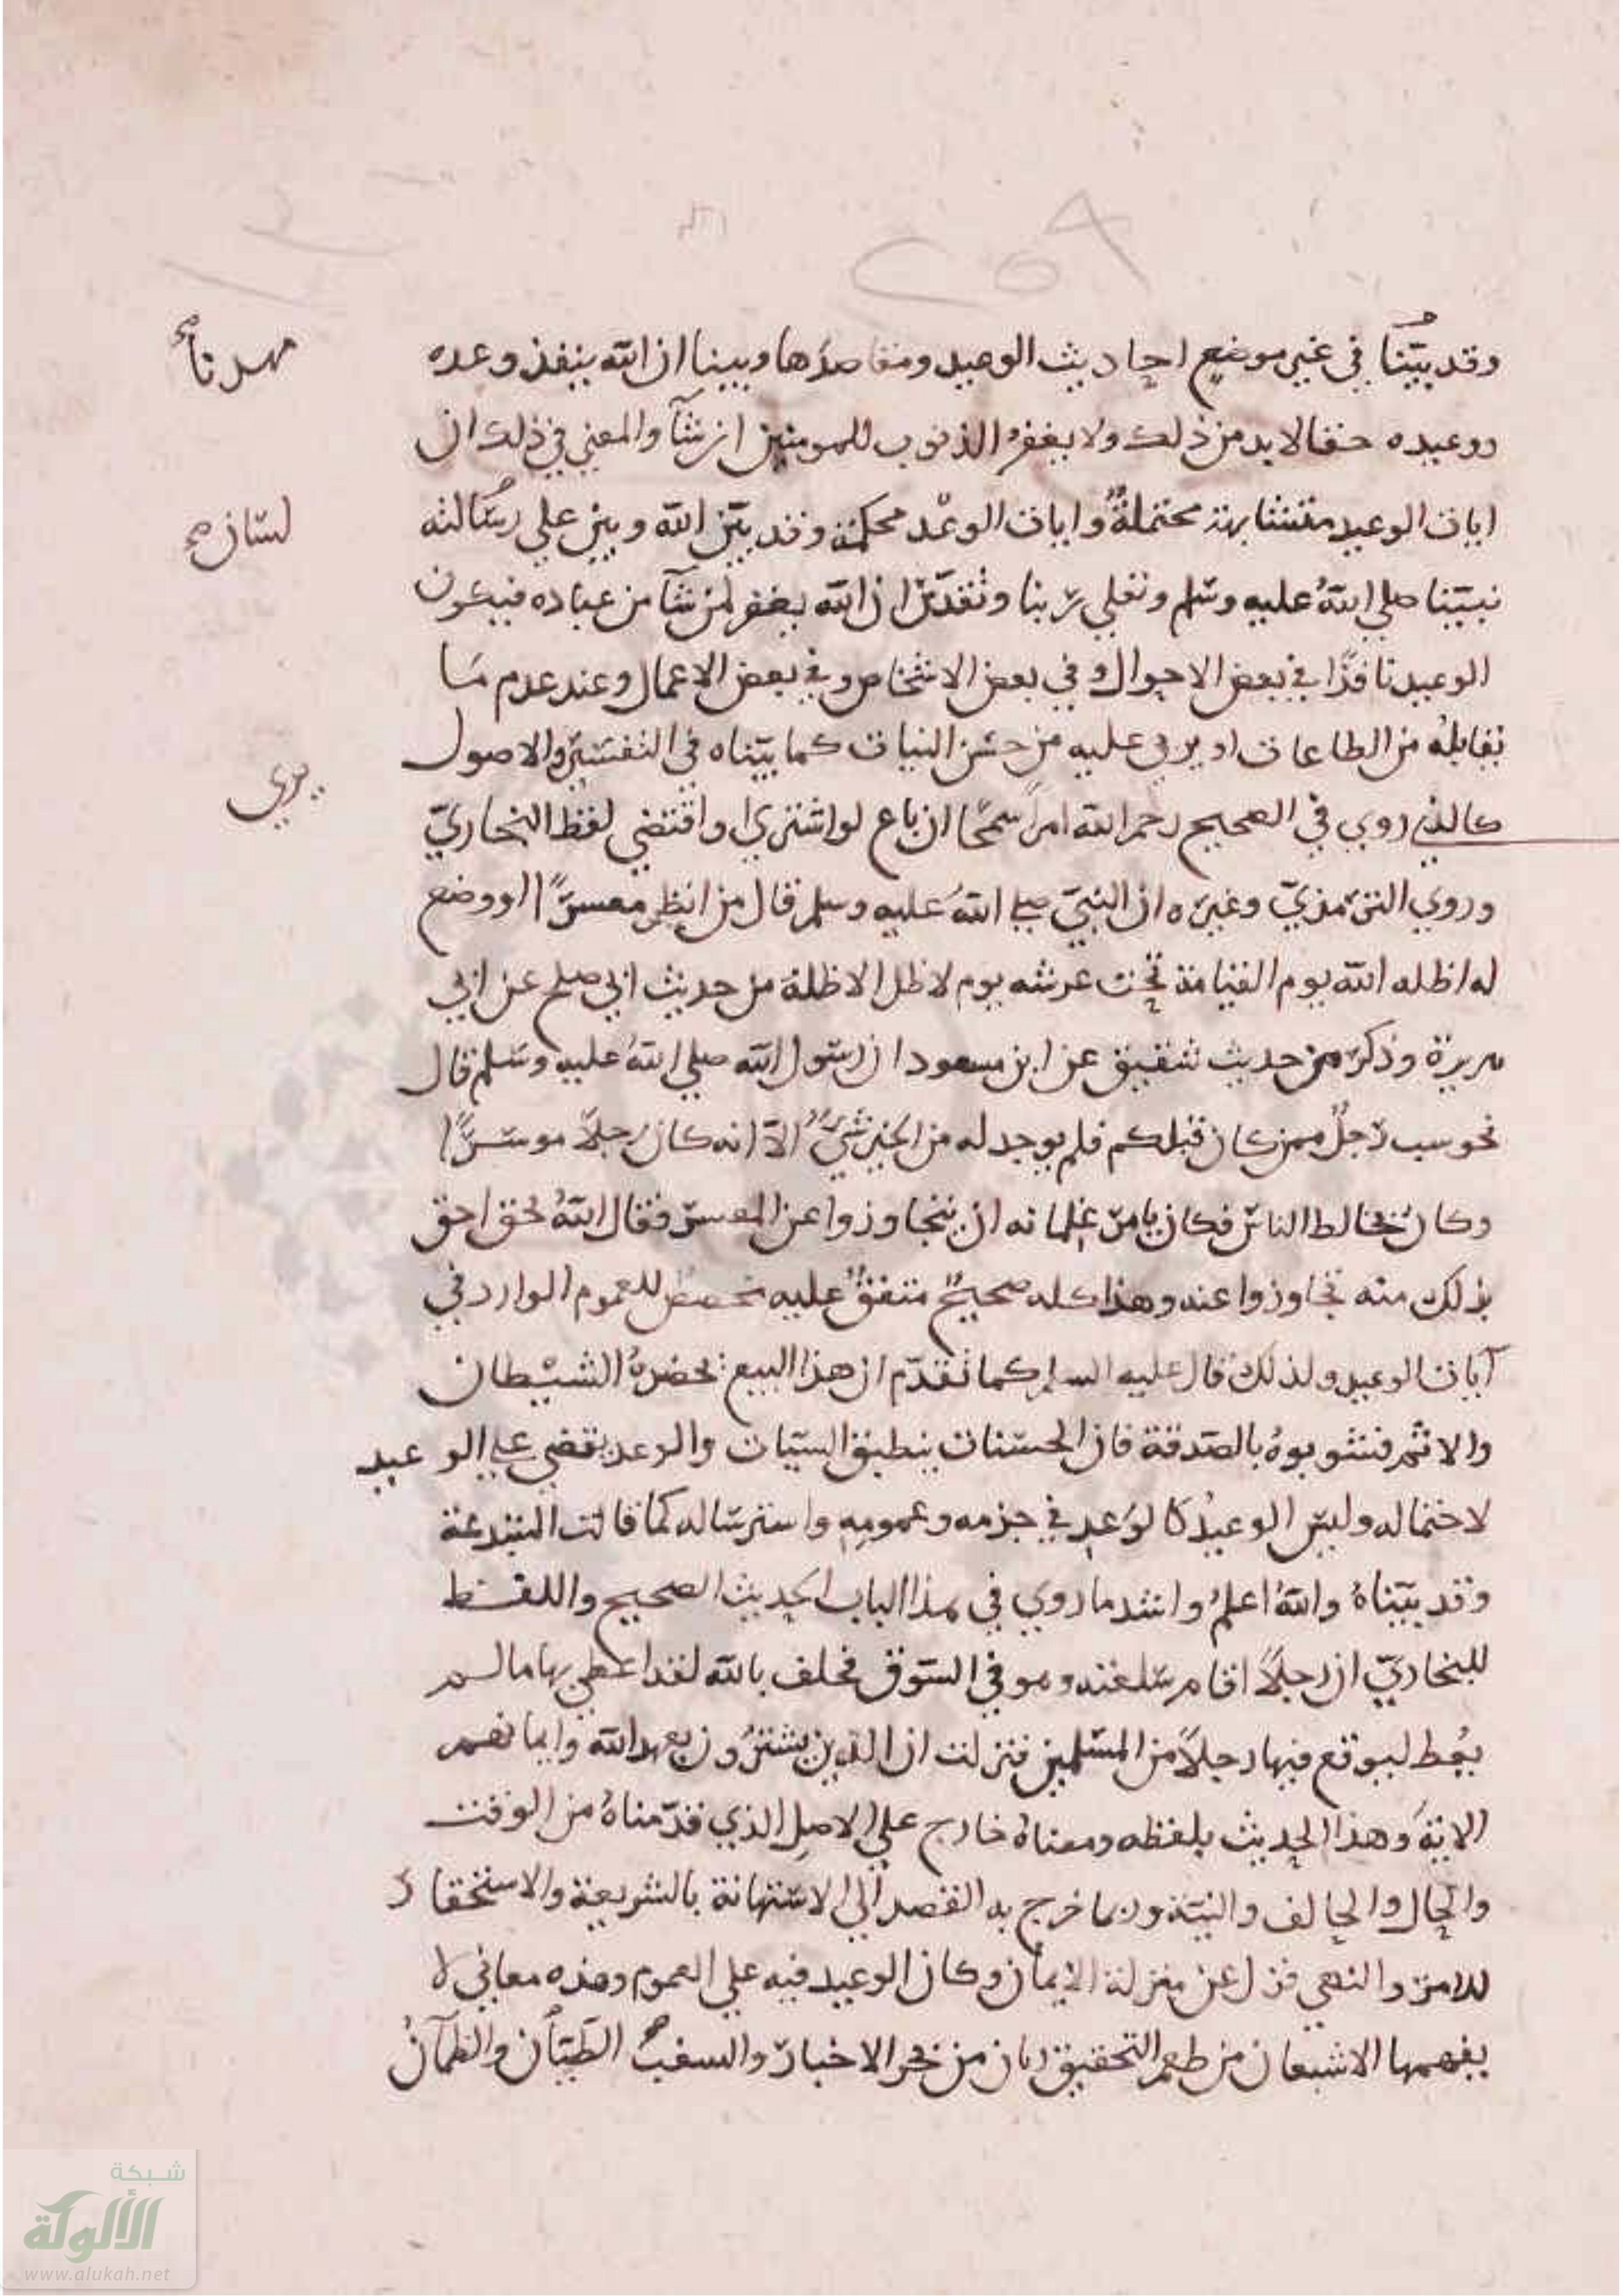 وقد بيّنا في غير موضع احاديث الوعيد ومقاصدها وبينا ان الله ينفذ وعده
مهدنا صح
ووعيده حقا لا بد من ذلك ولا يغفر الذنوب للمومنين ان شآ والمعني في ذلك ان
ايات الوعيد متشابهة محتملة وايات الوعد محكمة وقد بيّن الله وبين علي رسالته
لسان صح
نبيّنا صلي الله عليه وسلم وتعلي ربنا وتقدّس ان الله يغفر لمن شآ من عباده فيكون
الوعيد نافذًا في بعض الاحوال وفي بعض الاشخاص وفي بعض الاعمال وعند عدم ما
يقابله من الطاعات او يربي عليه من حسن النيات كما بيّناه في التفسير والاصول
يري
كالذي روي في الصحيح رحم الله امرأ سمحًا ان باع لو اشتري او اقتضي لفظ البخاريّ
وروي الترمذيّ وغيره ان النبيّ صلي الله عليه وسلم قال من انظر معسرًا او وضع
له اظله الله يوم القيامة تحت عرشه يوم لا ظل الا ظله من حديث ابي صلح عن ابي
هريرة وذكر من حديث شقيق عن ابن مسعود ان رسول الله صلي الله عليه وسلم قال
حوسب رجلٌ ممن كان قبلكم فلم يوجد له من الخير شيءٌ الا انه كان رجلاً موسرًا
وكان يخالط الناس فكان يامر غلمانه ان يتجاوزوا عن المعسر فقال الله نحن احق
بذلك منه تجاوزوا عنه وهذا كله صحيحٌ متفقٌ عليه مخصصٌ للعموم الوارد في
آيات الوعيد ولذلك قال عليه السلم كما تقدّم ان هذا البيع يحضره الشيْطان
والاثم فشوبوهُ بالصدقة فان الحسنات ينطبق السيات والوعد يقضي علي الوعيد
لاحتماله وليس الوعيدُ كالوَعدِ في جزمه وعمومهِ واسترساله كما قالت المبتدعة
وقد بيّناهُ والله اعلمُ واشد ما روي في هذا الباب الحديث الصحيح واللفظ
للبخاريّ ان رجلاً اقام سلعته وهو في السوق فحلف بالله لقد اعطي بها ما لم
يُعط ليوقع فيها رجلاً من المسلمين فنزلت ان الذين يشترُون بعهد الله وايمانهم
الاية وهذا الحديث بلفظه ومعناهُ خارج علي الاصل الذي قدّمناهُ من الوقت
والحال والحالف والنيّة وربما خرج به القصد الي الاستهانة بالشريعة والاستحقار
للامر والنهي فزل عن منزلة الايمان وكان الوعيد فيه علي العموم وهذه معاني لا
يفهمها الا شبعان من طعم التحقيق ريان من بحر الاخبار والسغب والظمآن
شبكة
الألوكة
www.alukah.net